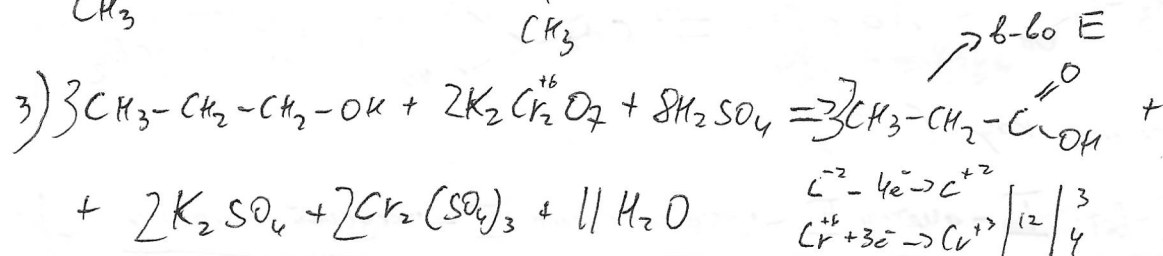 CH₃
CH₃
→ в-во E
3) 3CH₃-CH₂-CH₂-OH + 2K₂Cr₂⁺⁶O₇ + 8H₂SO₄ = 3CH₃-CH₂-C=O-OH +
+ 2K₂SO₄ + 2Cr₂(SO₄)₃ + 11H₂O
C⁻² - 4e⁻ → C⁺² | 12 | 3
Cr⁺⁶ + 3e⁻ → Cr⁺³ | 4